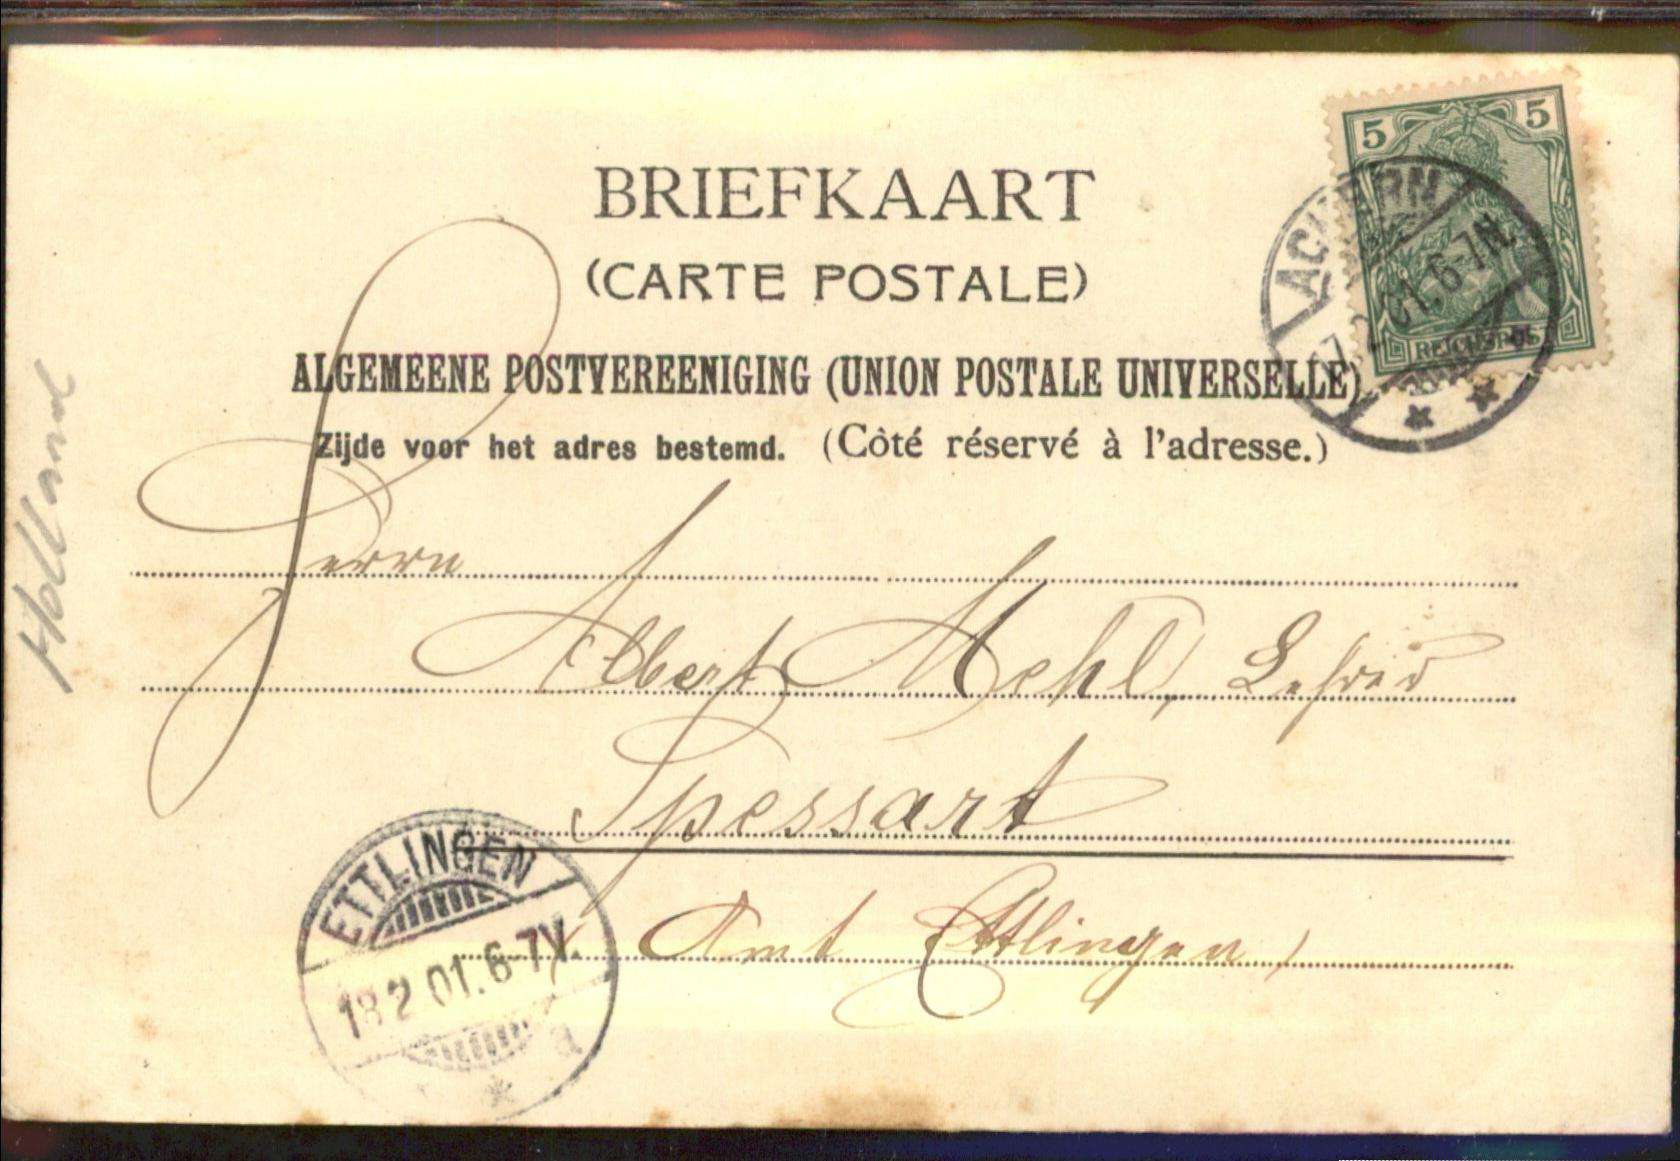 BRIEFKAART
(CARTE POSTALE)
ALGEMEENE POSTVEREENIGING (UNION POSTALE UNIVERSELLE)
Zijde voor het adres bestemd. (Côté réservé à l'adresse.)
5 5
REICHSPOST
ACHERN
2 01. 6-7N.
Holland
Herrn
Albert Mehl, Lehrer
Spessart
Amt Ettlingen
ETTLINGEN
18 2 01. 6-7V.
a